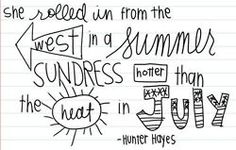 she rolled in from the
west in a summer
SUNDRESS hotter than
the heat in July
-Hunter Hayes